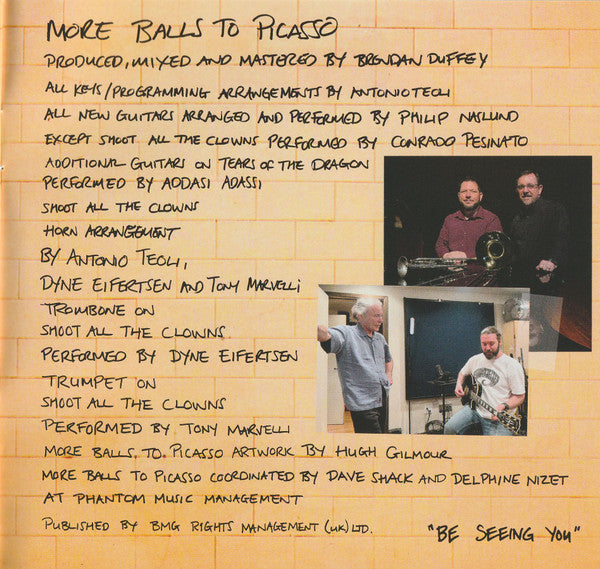 MORE BALLS TO PICASSO
PRODUCED, MIXED AND MASTERED BY BRENDAN DUFFEY
ALL KEYS/PROGRAMMING ARRANGEMENTS BY ANTONIO TEOLI
ALL NEW GUITARS ARRANGED AND PERFORMED BY PHILIP NASLUND
EXCEPT SHOOT ALL THE CLOWNS PERFORMED BY CONRADO PESINATO
ADDITIONAL GUITARS ON TEARS OF THE DRAGON
PERFORMED BY ADDASI ADASSI
SHOOT ALL THE CLOWNS
HORN ARRANGEMENT
BY ANTONIO TEOLI,
DYNE EIFERTSEN AND TONY MARVELLI
TROMBONE ON
SHOOT ALL THE CLOWNS
PERFORMED BY DYNE EIFERTSEN
TRUMPET ON
SHOOT ALL THE CLOWNS
PERFORMED BY TONY MARVELLI
MORE BALLS TO PICASSO ARTWORK BY HUGH GILMOUR
MORE BALLS TO PICASSO COORDINATED BY DAVE SHACK AND DELPHINE NIZET
AT PHANTOM MUSIC MANAGEMENT
PUBLISHED BY BMG RIGHTS MANAGEMENT (UK) LTD.
"BE SEEING YOU"